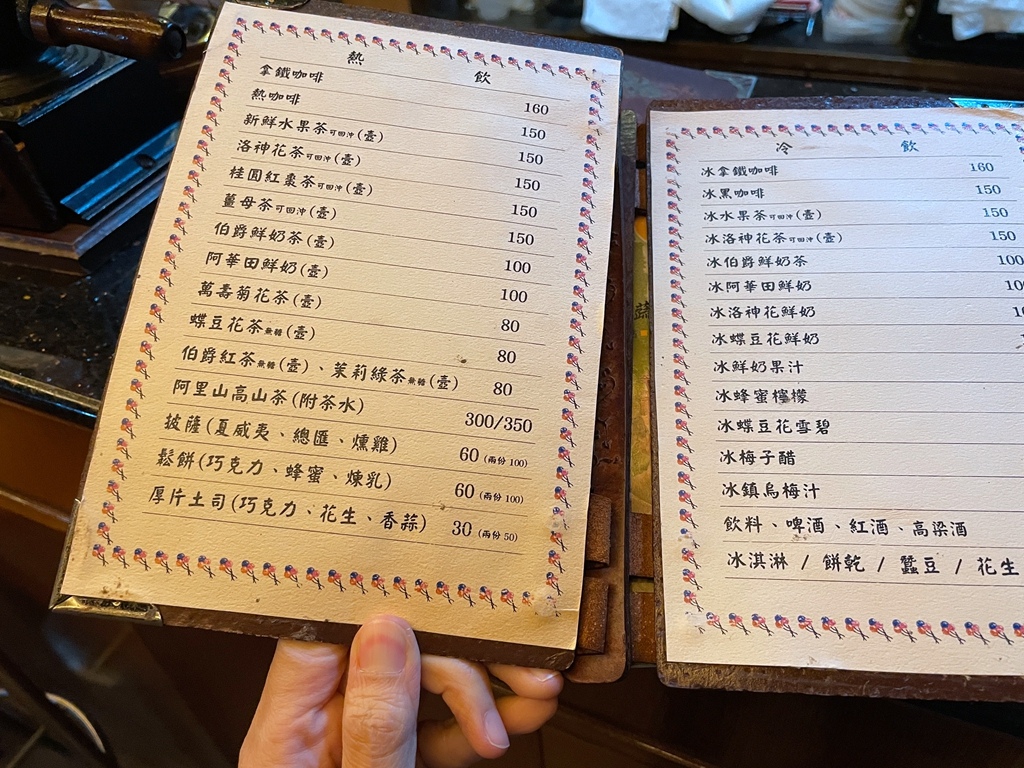 熱 飲
拿鐵咖啡 160
熱咖啡 150
新鮮水果茶可回沖(壺) 150
洛神花茶可回沖(壺) 150
桂圓紅棗茶可回沖(壺) 150
薑母茶可回沖(壺) 150
伯爵鮮奶茶(壺) 100
阿華田鮮奶(壺) 100
萬壽菊花茶(壺) 80
蝶豆花茶無糖(壺) 80
伯爵紅茶無糖(壺)、茉莉綠茶無糖(壺) 80
阿里山高山茶(附茶水) 300/350
披薩(夏威夷、總匯、燻雞) 60(兩份100)
鬆餅(巧克力、蜂蜜、煉乳) 60(兩份100)
厚片土司(巧克力、花生、香蒜) 30(兩份50)
冷 飲
冰拿鐵咖啡 160
冰黑咖啡 150
冰水果茶可回沖(壺) 150
冰洛神花茶可回沖(壺) 150
冰伯爵鮮奶茶 100
冰阿華田鮮奶
冰洛神花鮮奶
冰蝶豆花鮮奶
冰鮮奶果汁
冰蜂蜜檸檬
冰蝶豆花雪碧
冰梅子醋
冰鎮烏梅汁
飲料、啤酒、紅酒、高梁酒
冰淇淋 / 餅乾 / 蠶豆 / 花生